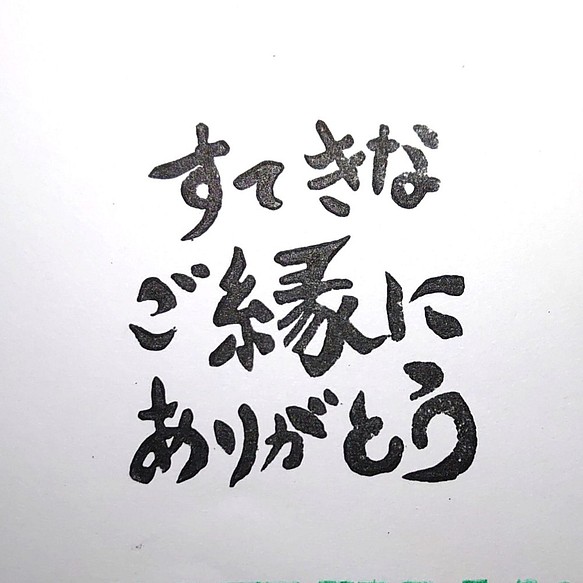 すてきな
ご縁に
ありがとう